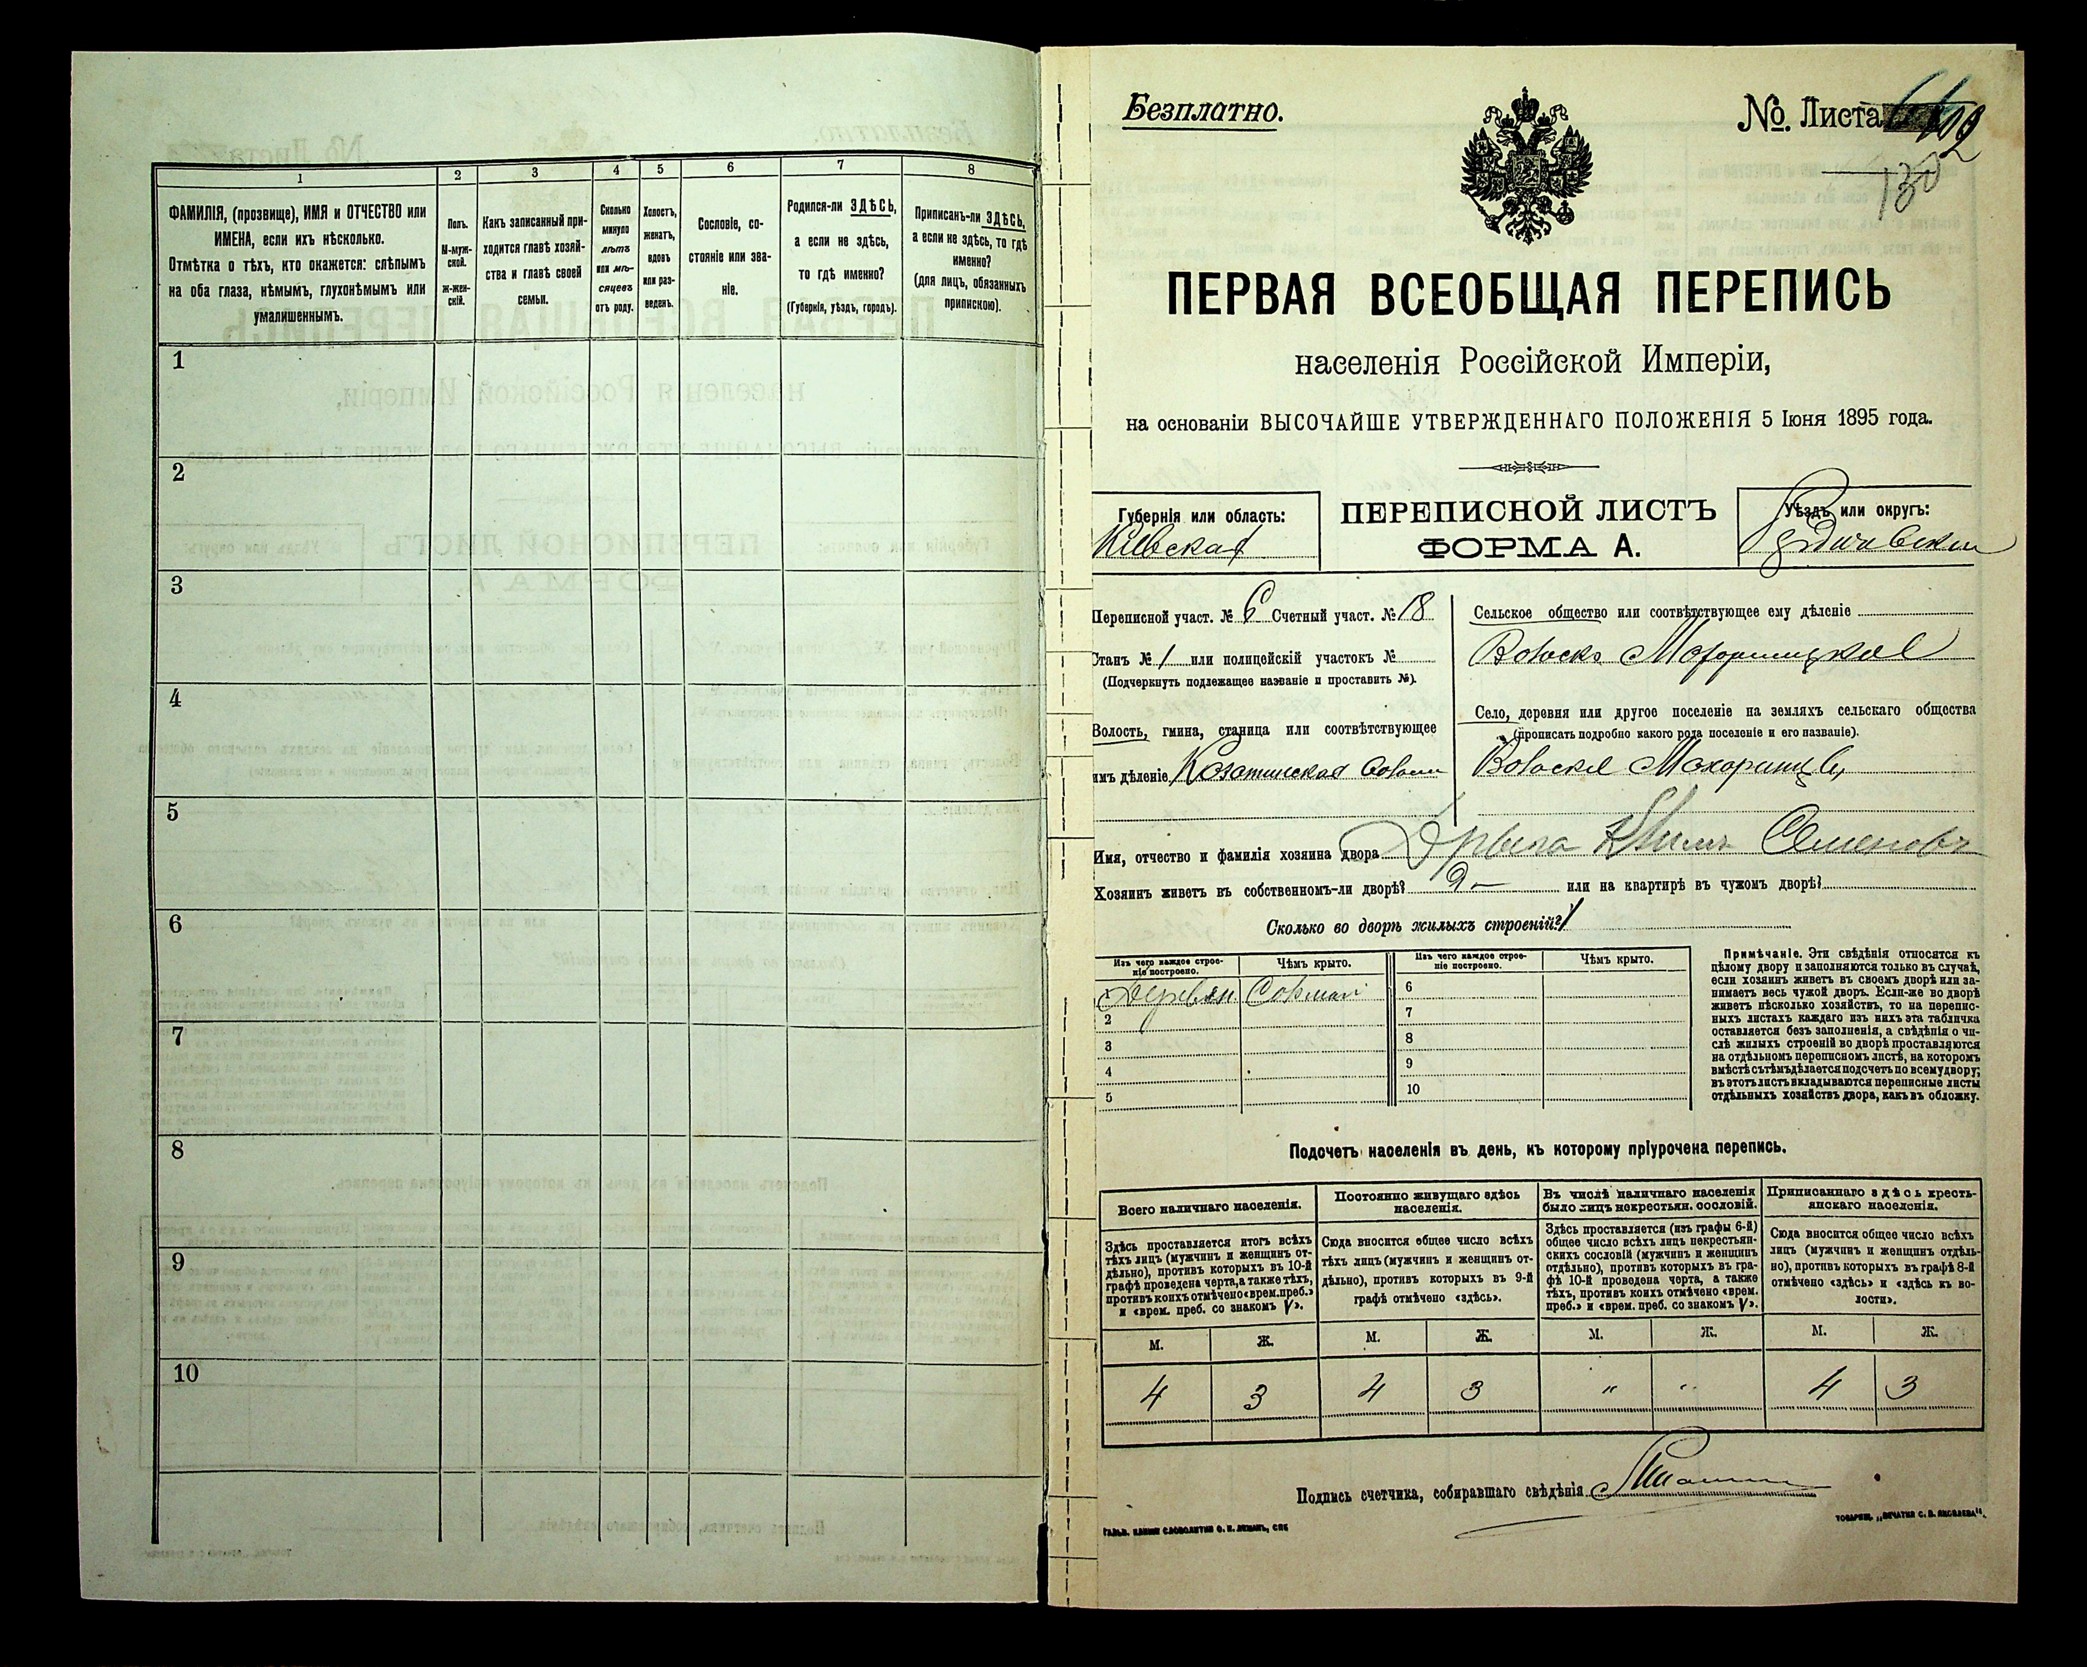 1
2
3
4
5
6
7
8
ФАМИЛІЯ, (прозвище), ИМЯ и ОТЧЕСТВО или
ИМЕНА, если ихъ нѣсколько.
Отмѣтка о тѣхъ, кто окажется: слѣпымъ
на оба глаза, нѣмымъ, глухонѣмымъ или
умалишеннымъ.
Полъ.
М-муж-
ской.
ж-жен-
скій.
Какъ записанный при-
ходится главѣ хозяй-
ства и главѣ своей
семьи.
Сколько
минуло
лѣтъ
или мѣ-
сяцевъ
отъ роду.
Холостъ,
женатъ,
вдовъ
или раз-
веденъ.
Сословіе, со-
стояніе или зва-
ніе.
Родился-ли ЗДѢСЬ,
а если не здѣсь,
то гдѣ именно?
(Губернія, уѣздъ, городъ).
Приписанъ-ли ЗДѢСЬ,
а если не здѣсь, то гдѣ
именно?
(для лицъ, обязанныхъ
припискою).
1
2
3
4
5
6
7
8
9
10
Безплатно.
№. Листа
130
ПЕРВАЯ ВСЕОБЩАЯ ПЕРЕПИСЬ
населенія Россійской Имперіи,
на основаніи ВЫСОЧАЙШЕ УТВЕРЖДЕННАГО ПОЛОЖЕНІЯ 5 Іюня 1895 года.
Губернія или область:
Кіевская
ПЕРЕПИСНОЙ ЛИСТЪ
ФОРМА А.
Уѣздъ или округъ:
Бердичевскій
Переписной участ. № 6 Счетный участ. № 18
Станъ № 1 или полицейскій участокъ №
(Подчеркнуть подлежащее названіе и проставить №).
Волость, гмина, станица или соотвѣтствующее
имъ дѣленіе Козатинская
Сельское общество или соотвѣтствующее ему дѣленіе
Село, деревня или другое поселеніе на земляхъ сельскаго общества
(прописать подробно какого рода поселеніе и его названіе).
Имя, отчество и фамилія хозяина двора Семеновъ
Хозяинъ живетъ въ собственномъ-ли дворѣ? или на квартирѣ въ чужомъ дворѣ?
Сколько во дворѣ жилыхъ строеній? 1
Изъ чего каждое строе-
ніе построено.
Чѣмъ крыто.
Изъ чего каждое строе-
ніе построено.
Чѣмъ крыто.
1 Деревян. Солмой
2
3
4
5
6
7
8
9
10
Примѣчаніе. Эти свѣдѣнія относятся къ
цѣлому двору и заполняются только въ случаѣ,
если хозяинъ живетъ въ своемъ дворѣ или за-
нимаетъ весь чужой дворъ. Если-же во дворѣ
живетъ нѣсколько хозяйствъ, то на перепис-
ныхъ листахъ каждаго изъ нихъ эта табличка
оставляется безъ заполненія, а свѣдѣнія о чи-
слѣ жилыхъ строеній во дворѣ проставляются
на отдѣльномъ переписномъ листѣ, на которомъ
вмѣстѣ съ тѣмъ дѣлается подсчетъ по всему двору;
въ этотъ листъ вкладываются переписные листы
отдѣльныхъ хозяйствъ двора, какъ въ обложку.
Подсчетъ населенія въ день, къ которому пріурочена перепись.
Всего наличнаго населенія.
Здѣсь проставляется итогъ всѣхъ
тѣхъ лицъ (мужчинъ и женщинъ от-
дѣльно), противъ которыхъ въ 10-й
графѣ проведена черта, а также тѣхъ,
противъ коихъ отмѣчено «врем. преб.»
и «врем. преб. со знакомъ V».
Постоянно живущаго здѣсь
населенія.
Сюда вносится общее число всѣхъ
тѣхъ лицъ (мужчинъ и женщинъ от-
дѣльно), противъ которыхъ въ 9-й
графѣ отмѣчено «здѣсь».
Въ числѣ наличнаго населенія
было лицъ некрестьян. сословій.
Здѣсь проставляется (изъ графы 6-й)
общее число всѣхъ лицъ некрестьян-
скихъ сословій (мужчинъ и женщинъ
отдѣльно), противъ которыхъ въ гра-
фѣ 10-й проведена черта, а также
тѣхъ, противъ коихъ отмѣчено «врем.
преб.» и «врем. преб. со знакомъ V».
Приписаннаго здѣсь кресть-
янскаго населенія.
Сюда вносится общее число всѣхъ
лицъ (мужчинъ и женщинъ отдѣль-
но), противъ которыхъ въ графѣ 8-й
отмѣчено «здѣсь» и «здѣсь къ во-
лости».
М. Ж. М. Ж. М. Ж. М. Ж.
4 3 4 3 " " 4 3
Подпись счетчика, собиравшаго свѣдѣнія
ГАЛЬВ. КЛИШЕ СЛОВОЛИТНИ О. И. ЛЕМАНЪ, СПБ
ТОВАРИЩ. „ПЕЧАТНЯ С. П. ЯКОВЛЕВА".